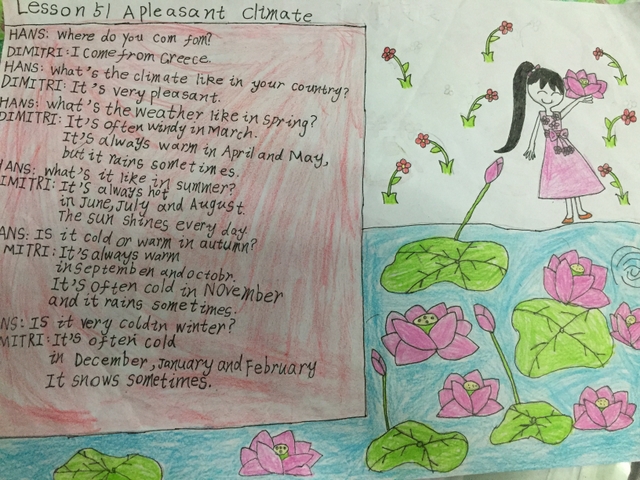 Lesson 51 A pleasant Climate
HANS: where do you com fom?
DIMITRI: I come from Greece.
HANS: what's the climate like in your country?
DIMITRI: It's very pleasant.
HANS: what's the weather like in spring?
DIMITRI: It's often windy in March.
It's always warm in April and May,
but it rains sometimes.
HANS: what's it like in summer?
IMITRI: It's always hot
in June, July and August.
The sun shines every day
ANS: IS it cold or warm in autumn?
MITRI: It's always warm
in septenben and octobr.
It's often cold in NOvember
and it rains sometimes.
NS: IS it very coldin winter?
MITRI: It's often cold
in December, January and February
It snows sometimes.